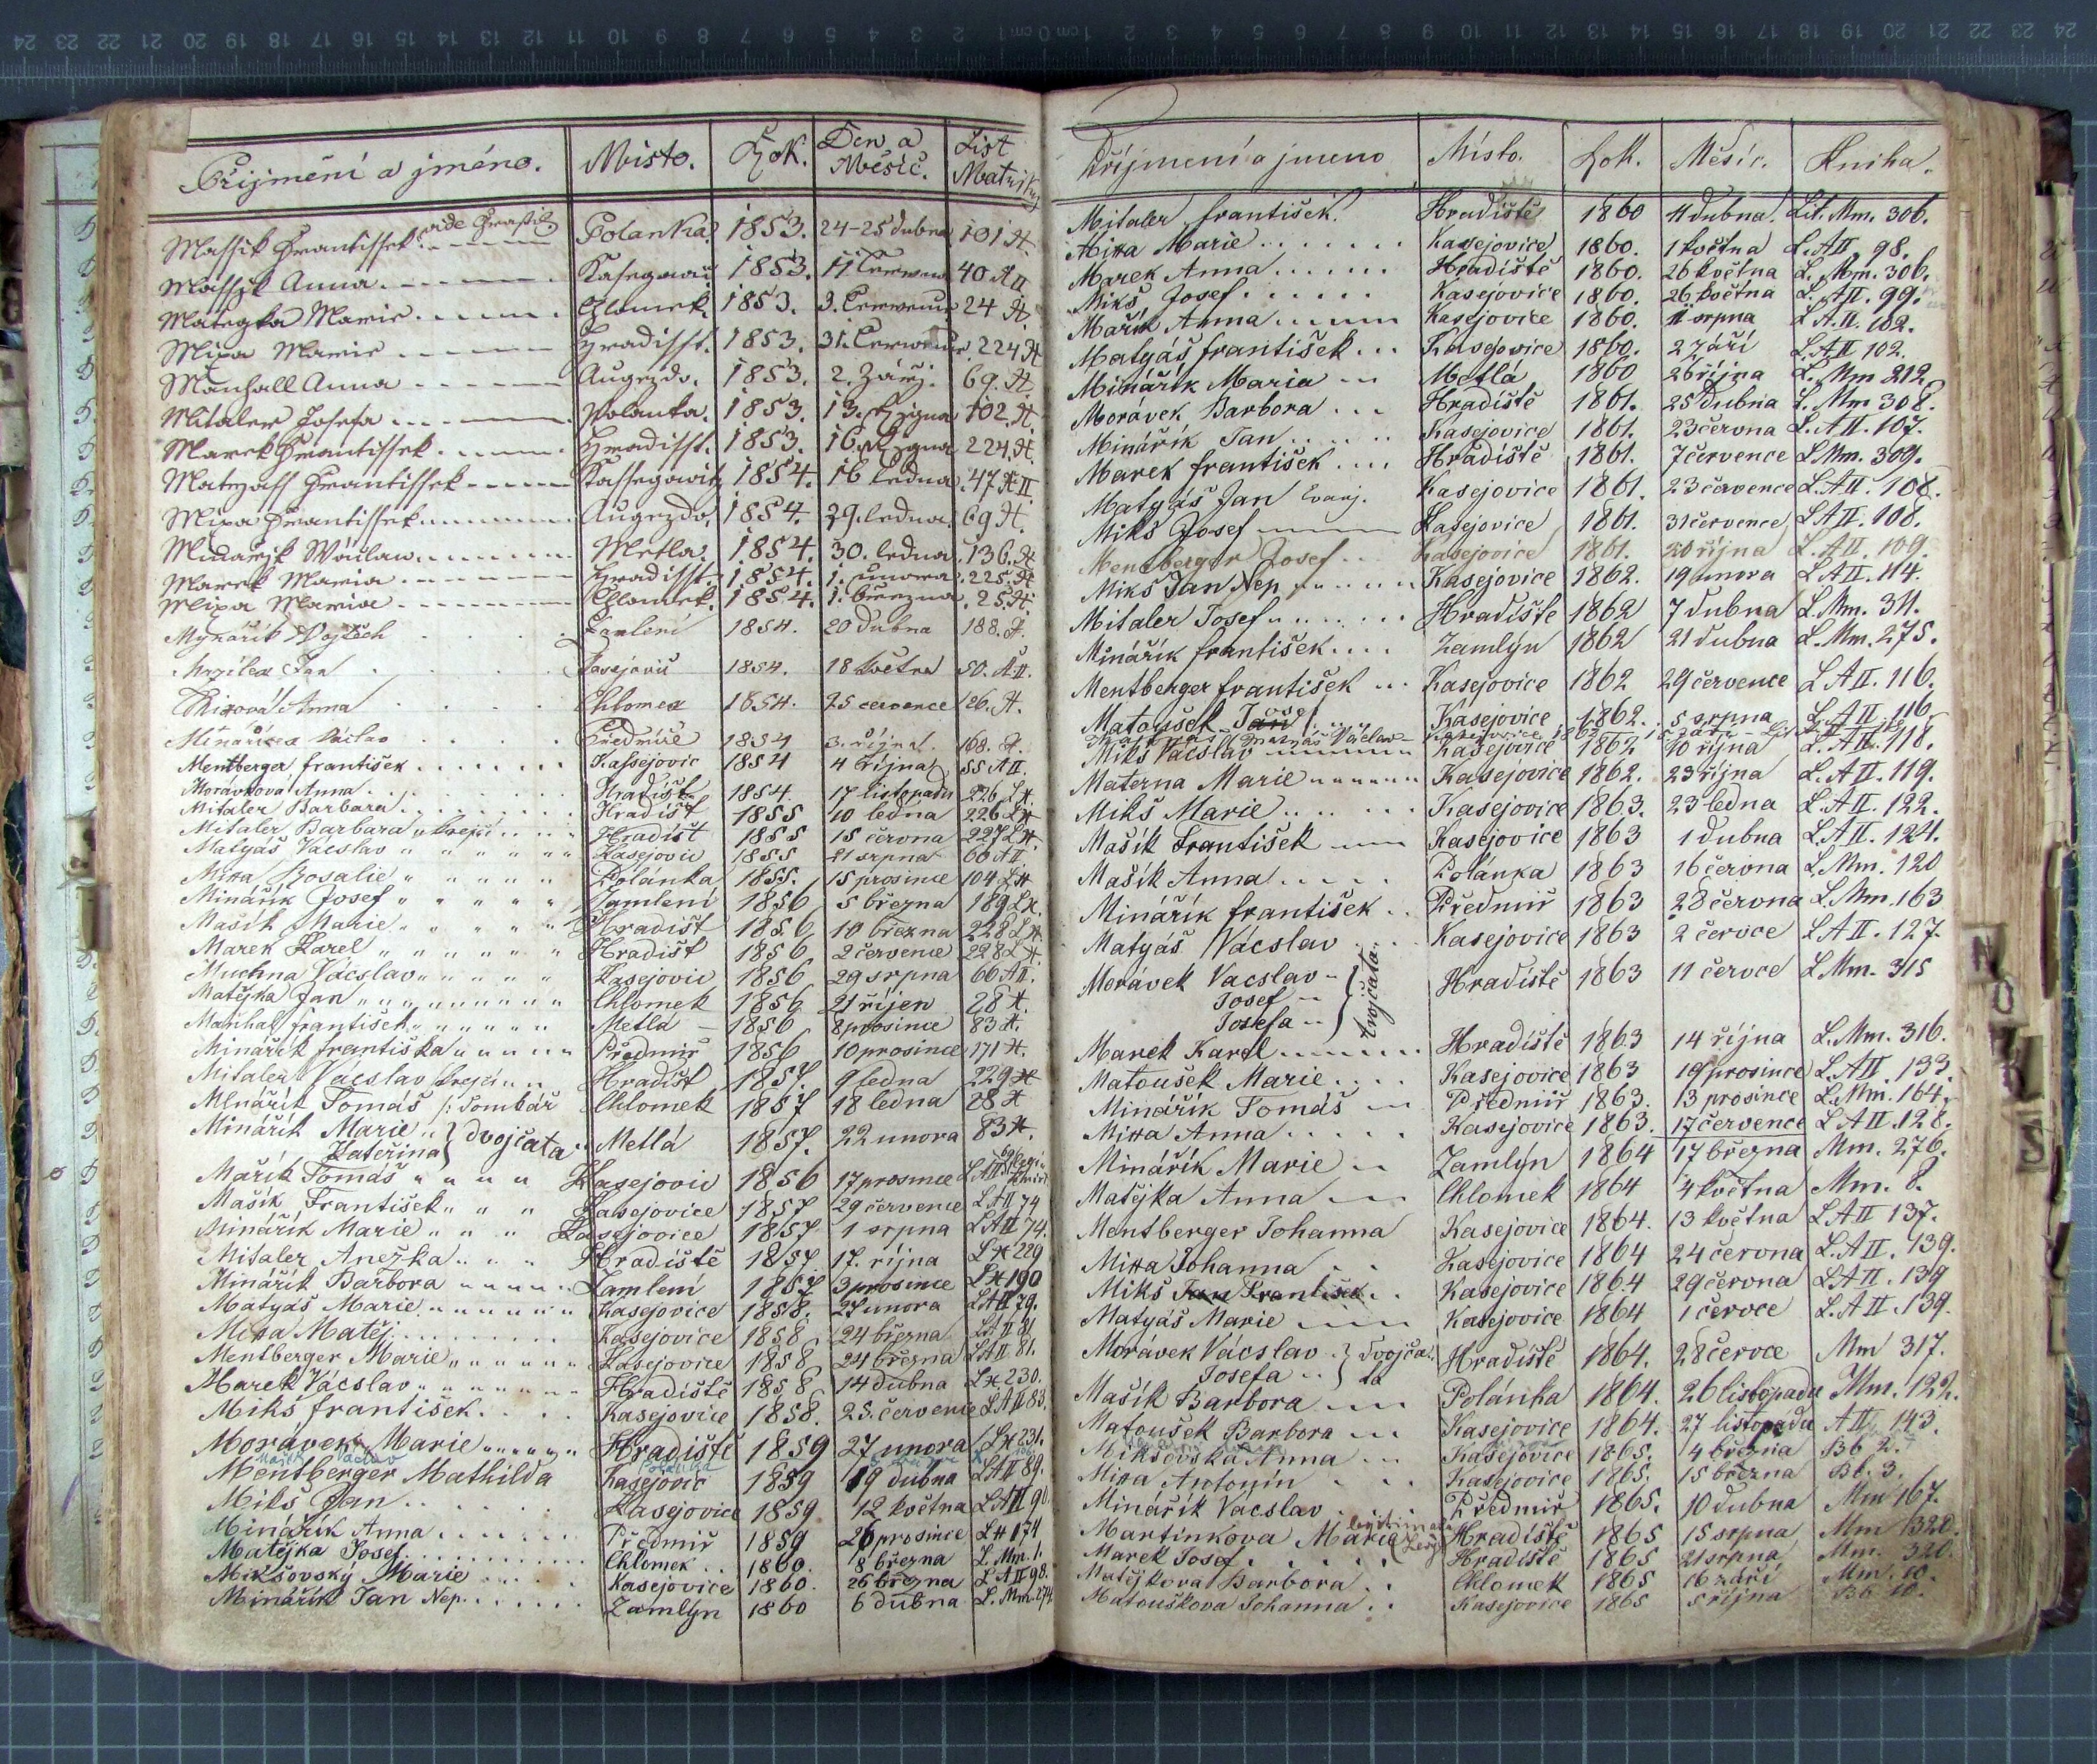 Přijmení a jméno. Místo. Rok. Den a Měsíc. List Matriky
Massik Frantissek Polanka 1853. 24-25 dubna 101 H.
Massyk Anna Kasegowic 1853. 11 Cerwna 40 A II
Mategka Marie Chlomek. 1853. 3. Cerwence 24 H.
Mixa Marie Hradisst. 1853. 31. Cerwence 224 H
Manhall Anna Augezdo. 1853. 2. Zárj. 69. H.
Mitaler Josefa Polanka. 1853. 13. Rzigna 102. H.
Marek Frantissek Hradisst. 1853. 16. Rzigna 224. H.
Mategass Frantissek Kassegowitz 1854. 16 ledna 47 A II.
Mixa Frantissek Augezdo. 1854. 29. ledna. 69 H.
Minarzjk Wáclaw Metla. 1854. 30. ledna. 136. H
Marek Maria Hradisst. 1854. 1. unora. 225. H
Mixa Maria Chlomek. 1854. 1. brezna. 25. H.
Mynářik Vojtěch Zamlení 1854. 20 dubna 188. H.
Jan Kasejovic 1854. 18 května 50. A II.
Anna Chlomek 1854. 25 cervence 26. H.
Václav Předmíř 1854 3. října 168. H.
Mentberger František Kassejovic 1854 4 října 55 A II
Morávková Anna Hradišt 1854 17 listopadu 226 L H.
Mitaler Barbara Hradišt 1855 10 ledna 226 L H
Mitaler Barbara krejčí Hradišt 1855 15 června 227 L H.
Matyáš Vácslav Kasejovic 1855 21 srpna 60 A II
Mixa Rosalie Polánka 1855. 15 prosince 104 L H
Minářík Josef Zamlení 1856 5 března 189 L H.
Mašík Marie Hradišt 1856 10 března 228 L H
Marek Karel Hradišt 1856 2 července 228 L H
Muchna Vácslav Kasejovic 1856 29 srpna 66 A II.
Matějka Jan Chlomek 1856 21 říjen 28 H.
Manhal František Metlá 1856 8 prosince 83 H.
Minářík františka Předmíř 1856 10 prosince 171 H.
Mitaler Vácslav krejčí Hradišt 1857. 9 ledna 229 H
Mlnařík Tomáš /: Tombář Chlomek 1857 18 ledna 28 H
Minářík Marie } dvojčata Metlá 1857. 22 unora 83 H.
Kateřina
Mařík Tomáš Kasejovic 1856 17 prosince L A II
Mašík František Kasejovice 1857 29 července L A II 74
Minářík Marie Kasejovice 1857 1 srpna L A II 74.
Mitaler Anežka Hradiště 1857. 17. října L H 229
Minářík Barbora Zamlení 1857 3 prosince L H 190
Matyáš Marie Kasejovice 1858 27 unora L A II 79.
Mixa Matěj Kasejovice 1858 24 března L A II 81
Mentberger Marie Kasejovice 1858 24 března L A II 81.
Marek Vácslav Hradiště 1858 14 dubna L H 230.
Mikš františek Kasejovice 1858. 25. července L A II 83.
Morávek Marie Hradiště 1859 27 unora L H 231.
Mašík Václav Polánka
Mentberger Mathilda Kasejovic 1859 19 dubna L A II 89.
Mikš Jan Kasejovice 1859 12 května L A II 90.
Minářík Anna Předmíř 1859 26 prosince L H 174
Matějka Josef Chlomek 1860. 8 března L. Mm. 1.
Mikšovský Marie Kasejovice 1860. 26 března L. A II 98.
Minářík Jan Nep. Zamlýn 1860 6 dubna L. Mm. 274.
Příjmení a jmeno Místo. Rok. Měsíc. Kniha.
Mitaler františek Hradiště 1860 11 dubna. Lit. Mm. 306.
Mixa Marie Kasejovice 1860. 1 května L. A II. 98.
Marek Anna Hradiště 1860. 26 května L. Mm. 306.
Mikš Josef Kasejovice 1860. 26 května L. A II. 99.
Mařík Anna Kasejovice 1860. 11 srpna L A. II. 102.
Matyáš františek Kasejovice 1860. 2 září L. A II 102.
Minářík Maria Metlá 1860 26 října L. Mm 212.
Morávek Barbora Hradiště 1861. 25 dubna L. Mm 308.
Minářík Jan Kasejovice 1861. 23 června L. A II. 107.
Marek františek Hradiště 1861. 7 července L Mm. 309.
Matyáš Jan Evanj. Kasejovice 1861. 23 července L. A II. 108.
Mikš Josef Kasejovice 1861. 31 července L A II. 108.
Mentberger Josef Kasejovice 1861. 20 října L. A II. 109.
Mikš Jan Nep Kasejovice 1862. 19 unora L A II. 114.
Mitaler Josef Hradiště 1862 7 dubna L. Mm. 311.
Minářík františek Zamlýn 1862 21 dubna L. Mm. 275.
Mentberger františek Kasejovice 1862 29 července L A II. 116.
Matoušek Jan Josef Kasejovice 1862. 5 srpna L. A II 116
Mikš Vácslav Kasejovice 1862 10 října L. A II. 118.
Materna Marie Kasejovice 1862. 23 října L. A II. 119.
Mikš Marie Kasejovice 1863. 23 ledna L. A II. 122.
Mašík František Kasejovice 1863 1 dubna L. A II. 124.
Mašík Anna Polánka 1863 16 června L. Mm. 120
Minářík františek Předmíř 1863 28 června L. Mm. 163
Matyáš Vácslav Kasejovice 1863 2 červce L A II. 127.
Morávek Vacslav Hradiště 1863 11 červce L Mm. 315
Josef
Josefa } trojčata.
Marek Karel Hradiště 1863 14 října L. Mm. 316.
Matoušek Marie Kasejovice 1863 19 prosince L. A II. 133.
Minářík Tomáš Předmíř 1863. 13 prosince L. Mm. 164.
Mixa Anna Kasejovice 1863. 17 července L A II. 128.
Minářík Marie Zamlýn 1864 17 března Mm. 276.
Matějka Anna Chlomek 1864 4 května Mm. 8.
Mentberger Johanna Kasejovice 1864. 13 května L. A II 137.
Mixa Johanna Kasejovice 1864 24 června L. A II. 139.
Mikš Jan Frantisek Kasejovice 1864 29 června L A II. 139
Matyáš Marie Kasejovice 1864 1 červce L. A II. 139.
Morávek Vácslav } dvojča- Hradiště 1864. 28 červce Mm 317.
Josefa } ta
Mašík Barbora Polánka 1864. 26 listopadu Mm. 122.
Matoušek Barbora Kasejovice 1864. 27 listopadu A II 143.
Mikšovská Anna Kasejovice 1865. 4 března Bb 2.
Mixa Antonín Kasejovice 1865. 15 března Bb. 3.
Minářík Vacslav Předmíř 1865. 10 dubna Mm 167.
Martinkova Marie Hradiště 1865 15 srpna Mm 320.
Marek Josef Hradiště 1865 21 srpna Mm. 320.
Matějkova Barbora Chlomek 1865 16 září Mm. 10.
Matouškova Johanna Kasejovice 1865 5 října Bb 10.